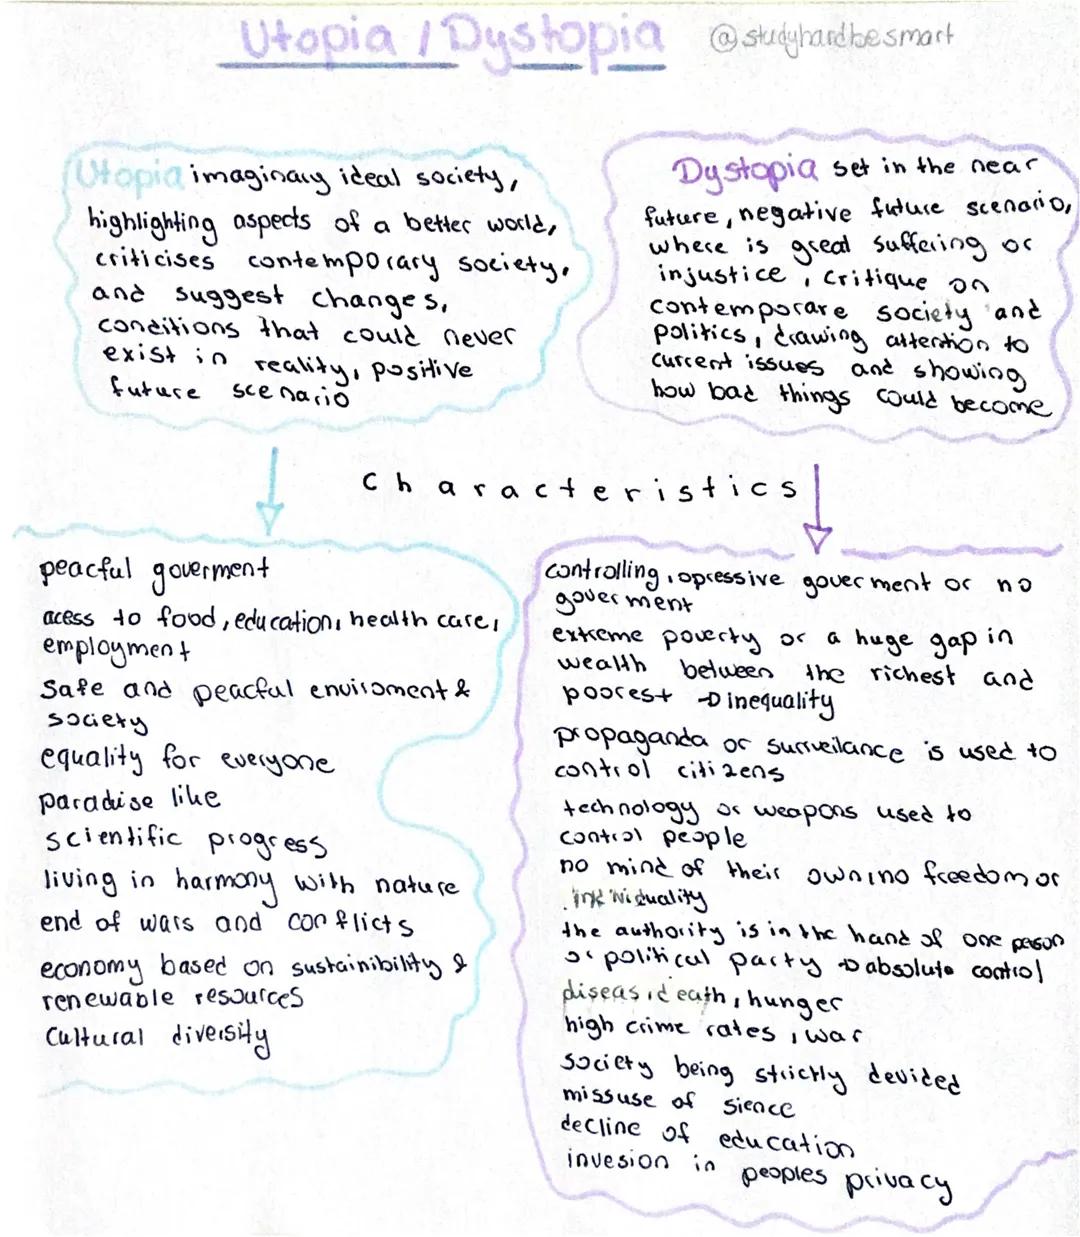 Utopia / Dystopia @studyhardbesmart
Utopia imaginary ideal society,
highlighting aspects of a better world,
criticises contemporary society,
and suggest changes,
conditions that could never
exist in reality, positive
future scenario
Dystopia set in the near
future, negative future scenario,
where is great suffering or
injustice, critique on
contemporare society and
politics, drawing attention to
current issues and showing
how bad things could become
Characteristics
peacful goverment
acess to food, education, health care,
employment
Safe and peacful enviroment &
society
equality for everyone
paradise like
scientific progress
living in harmony with nature
end of wars and conflicts
economy based on sustainibility &
renewable resources
Cultural diversity
controlling, opressive goverment or no
goverment
extreme poverty or a huge gap in
wealth between the richest and
poorest → inequality
propaganda or surrveilance is used to
control citizens
technology or weapons used to
control people
no mind of their own, no freedom or
individuality
the authority is in the hand of one person
or political party → absolute control
diseas, death, hunger
high crime rates, war
society being strictly devided
missuse of sience
decline of education
invesion in peoples privacy